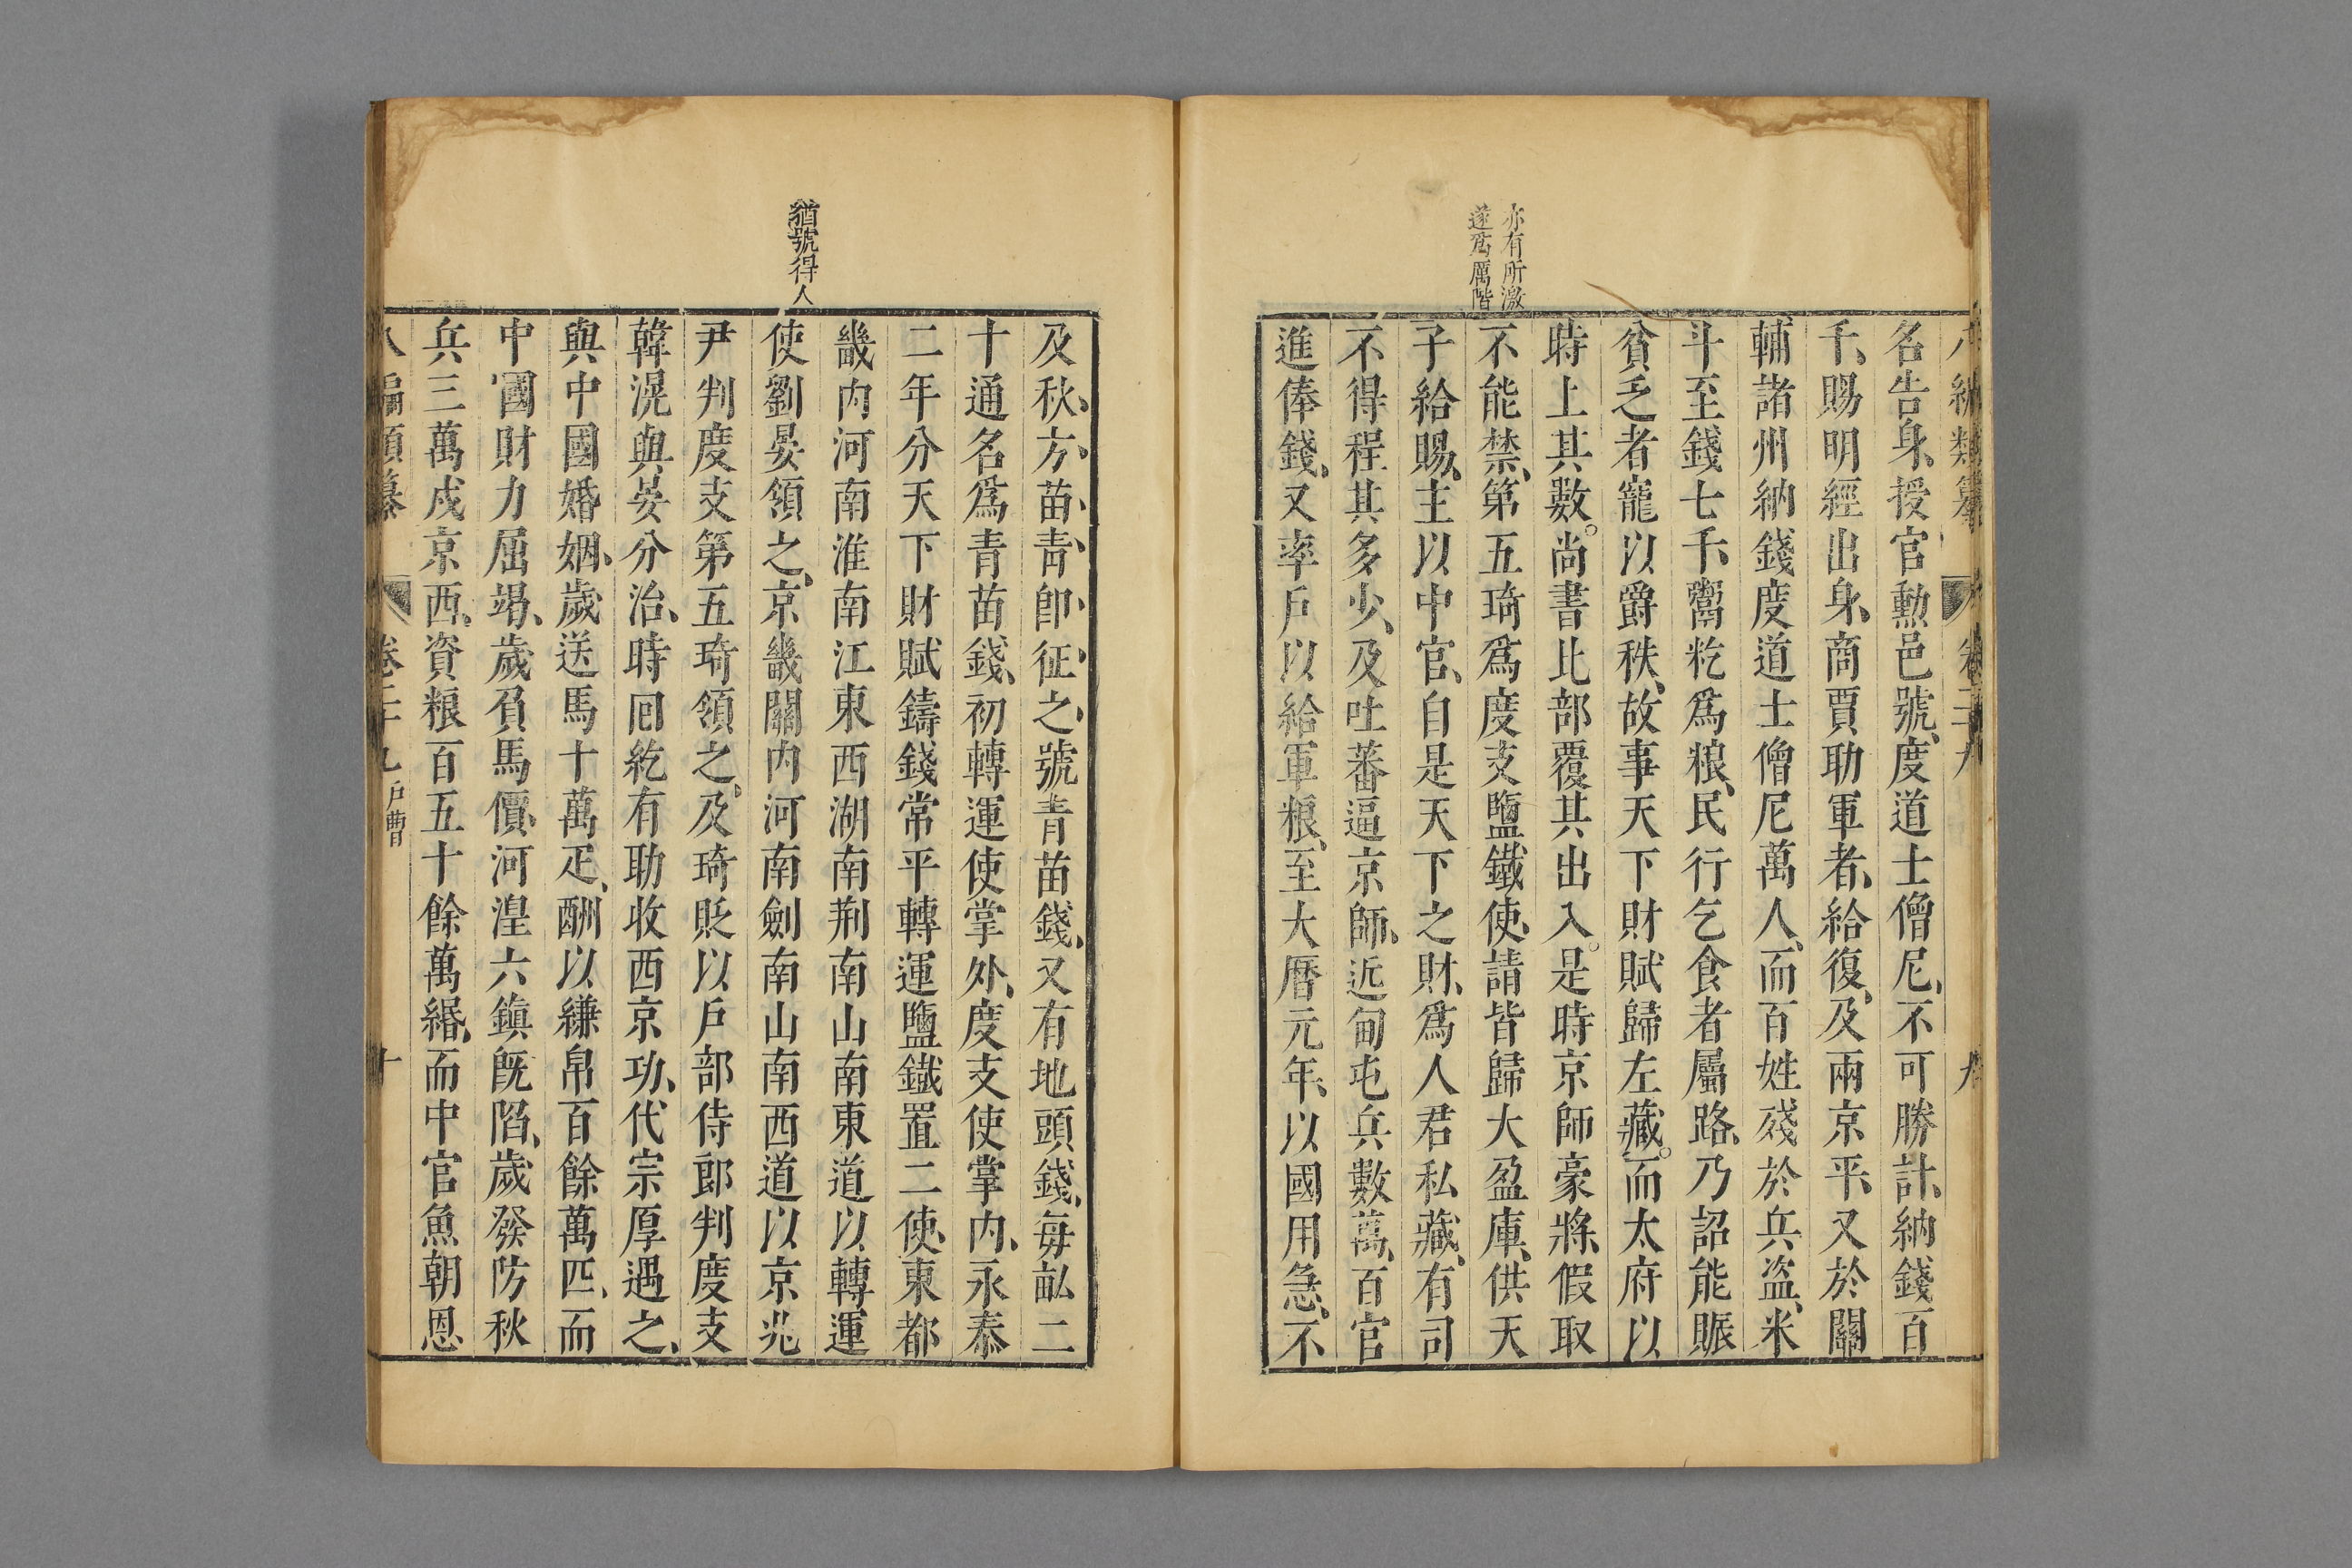 八編類纂 卷二十九 九
名告身、授官勲邑號、度道士僧尼、不可勝計、納錢百
千、賜明經出身、商賈助軍者、給復、及兩京平、又於關
輔諸州納錢度道士僧尼萬人、而百姓殘於兵盗、米
斗至錢七千、鬻籺爲粮、民行乞食者屬路、乃詔能賑
貧乏者寵以爵秩、故事天下財賦歸左藏。而太府以
時上其數。尚書比部覆其出入。是時京師豪將、假取
不能禁、第五琦爲度支鹽鐵使、請皆歸大盈庫、供天
子給賜、主以中官、自是天下之財、爲人君私藏、有司
不得程其多少、及吐蕃逼京師、近甸屯兵數萬、百官
進俸錢、又率戶以給軍粮、至大曆元年、以國用急、不
亦有所激
遂爲厲階
及秋、方、苗、青、卽、征、之、號青苗錢、又有地頭錢、每畝二
十通名爲青苗錢、初轉運使掌外、度支使掌内、永泰
二年分天下財賦鑄錢常平轉運鹽鐵置二使、東都
畿内河南淮南江東西湖南荆南山南東道以轉運
使劉晏領之、京畿關内河南劍南山南西道以京兆
尹判度支第五琦領之。及琦貶以戶部侍郎判度支
韓滉與晏分治、時囘紇有助收西京功、代宗厚遇之、
與中國婚姻、歲送馬十萬疋、酬以縑帛百餘萬匹、而
中國財力屈竭、歲負馬價、河湟六鎮旣陷、歲發防秋
兵三萬戍京西、資粮百五十餘萬緡、而中官魚朝恩
猶號得人
八編類纂 卷二十九 戶曹 十